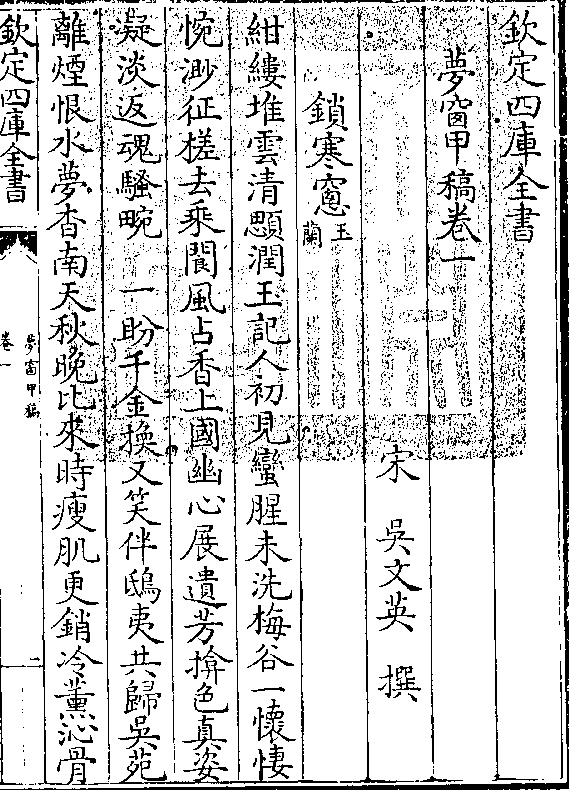 欽定四庫全書
夢窗甲稿卷一
宋 吳文英 撰
鎖寒窻 玉蘭
紺縷堆雲清顋潤玉記人初見蠻腥未洗梅谷一懷悽
惋渺征槎去乘閬風占香上國幽心展遺芳揜色真姿
凝淡返魂騷畹 一盼千金換又笑伴鴟夷共歸吳苑
離煙恨水夢杳南天秋晚比來時瘦肌更銷冷薰沁骨
欽定四庫全書
夢窗甲稿
卷一